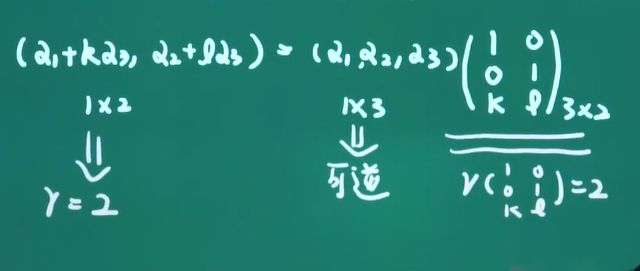 (α₁+kα₃, α₂+lα₃) = (α₁, α₂, α₃) (1 0 0 1 k l)3×2
1×2 1×3
⇓ ⇓
r=2 可逆 r(1 0 0 1 k l)=2